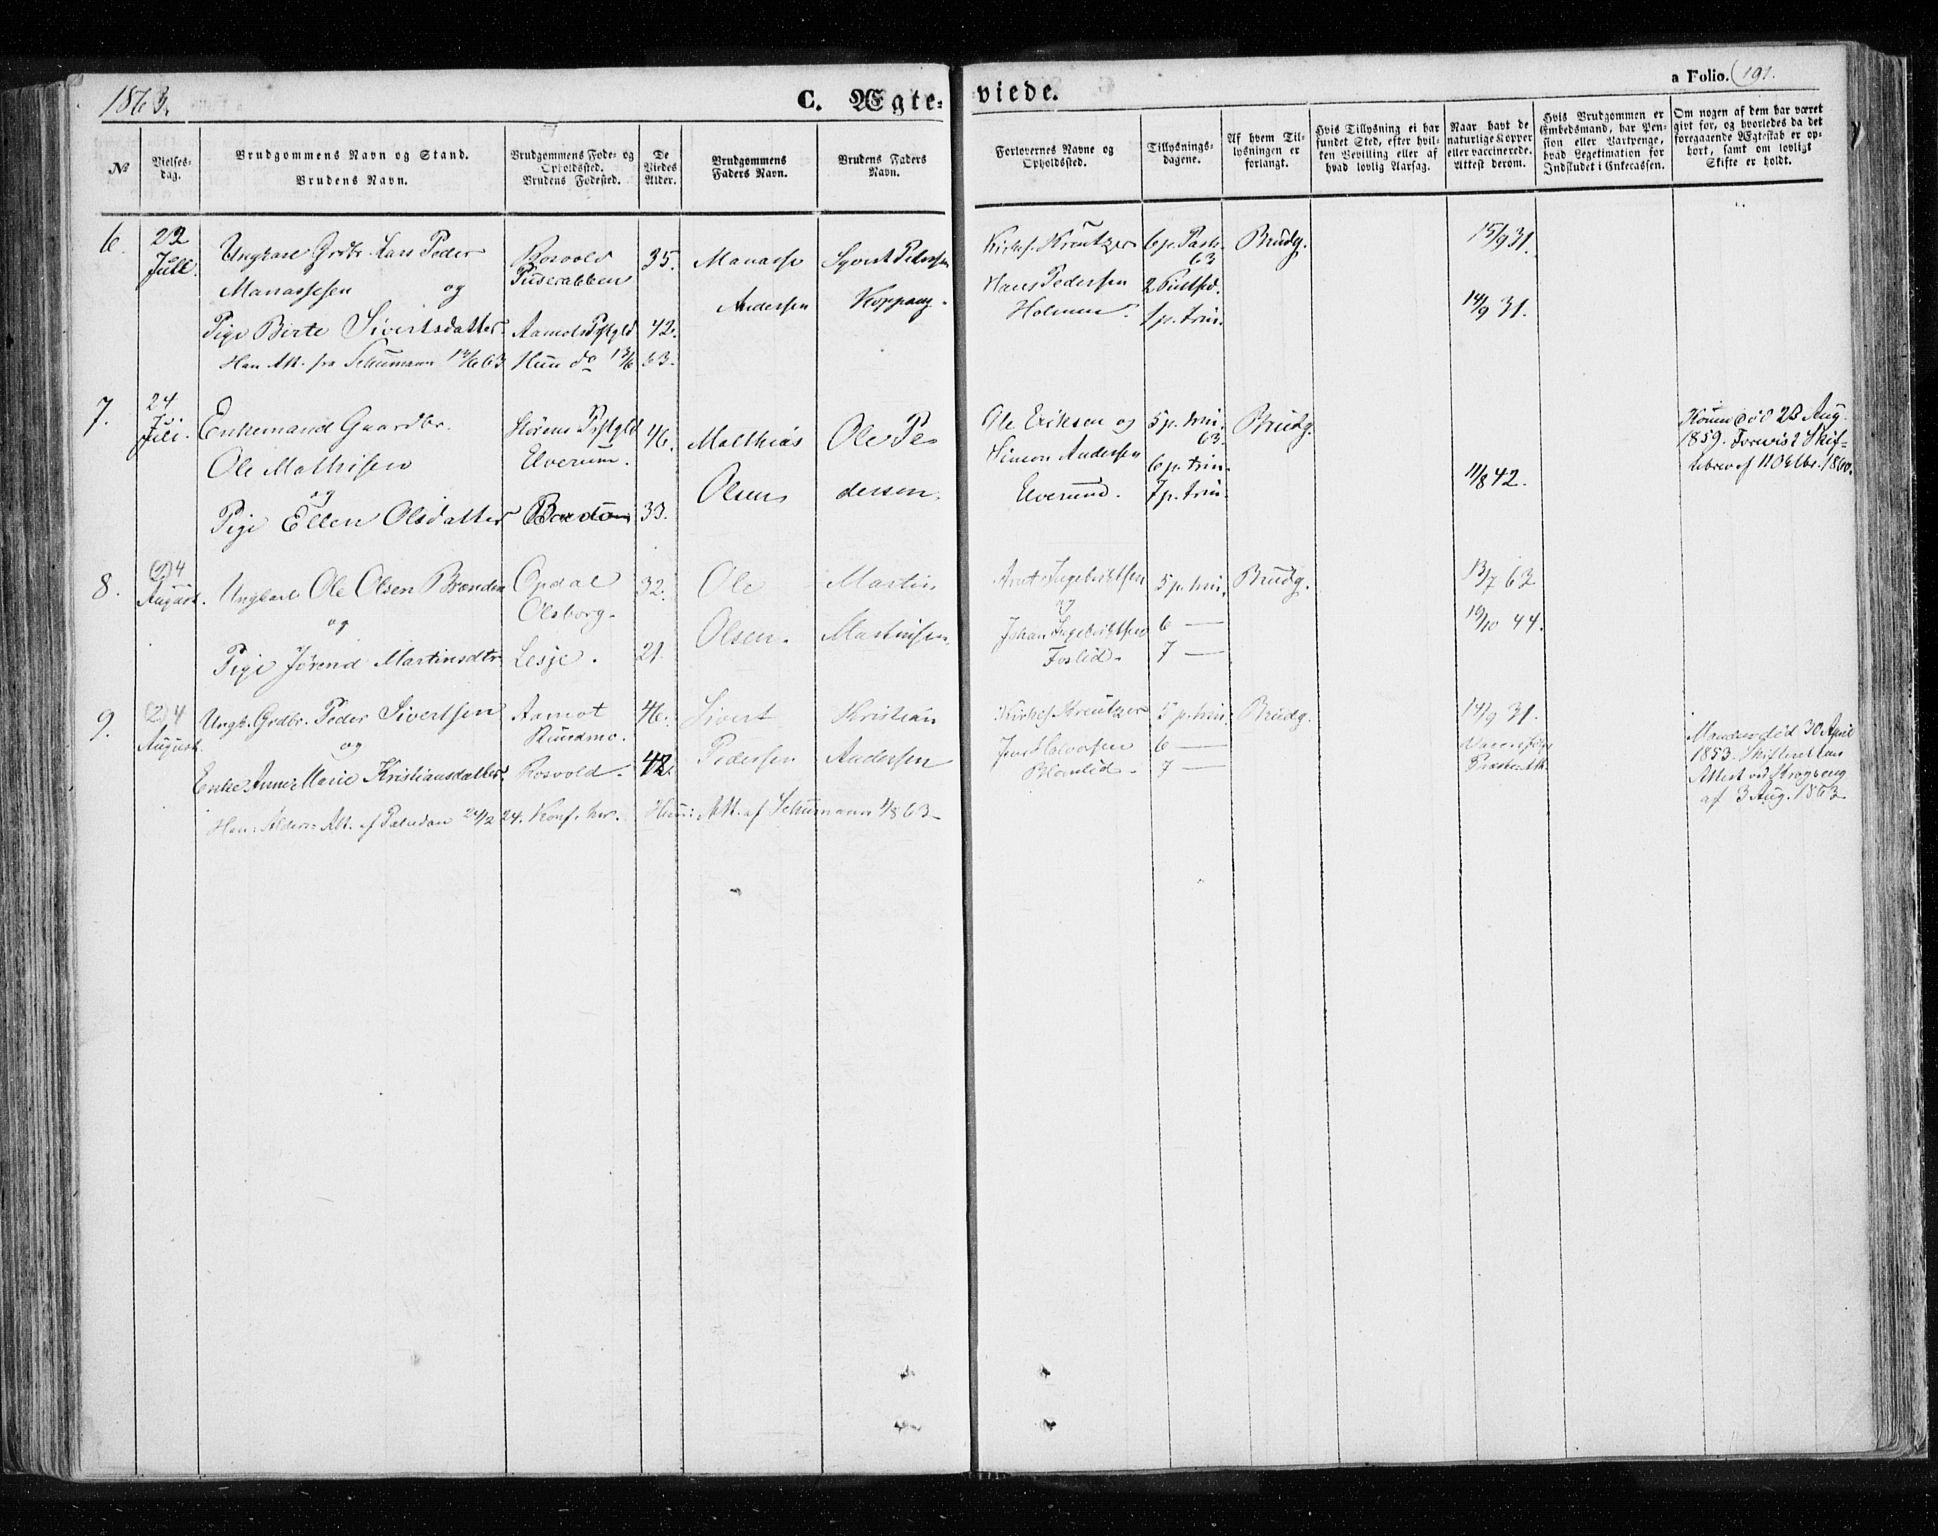 1863.
C. Ægte= viede.
a Folio. (191.
No
Vielses-
dag.
Brudgommens Navn og Stand.
Brudens Navn.
Brudgommens Føde- og
Opholdssted.
Brudens Fødested.
De
Viedes
Alder.
Brudgommens
Faders Navn.
Brudens Faders
Navn.
Forlovernes Navne og
Opholdssted.
Tillysnings-
dagene.
Af hvem Til-
lysningen er
forlangt.
Hvis Tillysning ei har
fundet Sted, efter hvil-
ken Bevilling eller af
hvad lovlig Aarsag.
Naar havt de
naturlige Kopper
eller vaccinerede.
Attest derom.
Hvis Brudgommen er
Embedsmand, har Pen-
sion eller Vartpenge,
hvad Legetimation for
Indskudet i Enkecassen.
Om nogen af dem har været
gift før, og hvorledes da det
foregaaende Ægteskab er op-
hørt, samt om lovligt
Skifte er holdt.
6. 22 Ungkarl Grdbr. Lars Peder Rosvold 35. Manasse Syvert Pedersen Kirkes. Kreutzer 6 p. Pask. Brudg. 15/9 31.
Juli. Manassesen og 63
Andersen Koppang. Hans Pedersen
Holmen. 1 p. trin. 14/9 31.
Pige Birte Sivertsdatter Aamots Pstgld 42.
Han Att. fra Schumann 12/6 63 Hun do 13/6 63.
7. 24 Enkemand Gaardbr. Pstgld 46. Matthias Ole Pe- Ole Eriksen og 5 p. trin. Brudg. Konen død 28 Aug.
Juli. 63. 1859. Forevist Skif-
Ole Mathisen Elverum. Simon Andersen 6 p. trin. tebrev af 11 Oktbr. 1860.
og Olsen dersen. Elverund. 7 p. trin. 11/8 42.
Pige Ellen Olsdatter 33.
8. (2) 4 Ungkarl Ole Olsen Brænden Opdal 32. Ole Martin Arnt Ingebrigtsen 5 p. trin. Brudg. 13/7 62
August. og Olsborg. og
Olsen. Martinsen Johan Ingebrigtsen 6 — 19/10 44.
Pige Jørend Martinsdtr. Lesje. 21. Foslid. 7 —
9. (2) 4 Ungk. Grdbr. Peder Sivertsen Aamot 46. Sivert Kristian Kirkes. Kreutzer 5 p. trin. Brudg. 14/9 31.
August. og Rundmo. Manden død 30 April
Pedersen Andersen Jens Halvorsen 6 — 1853.
Enke Anne Marie Kristiansdatter Rosvold. 42. 7 — Attest
Han: Alders: Att. af Paludan 24/2 24. Konf. her. Hun: Att. af Schumann 1/8 63. af 3 Aug. 1863.